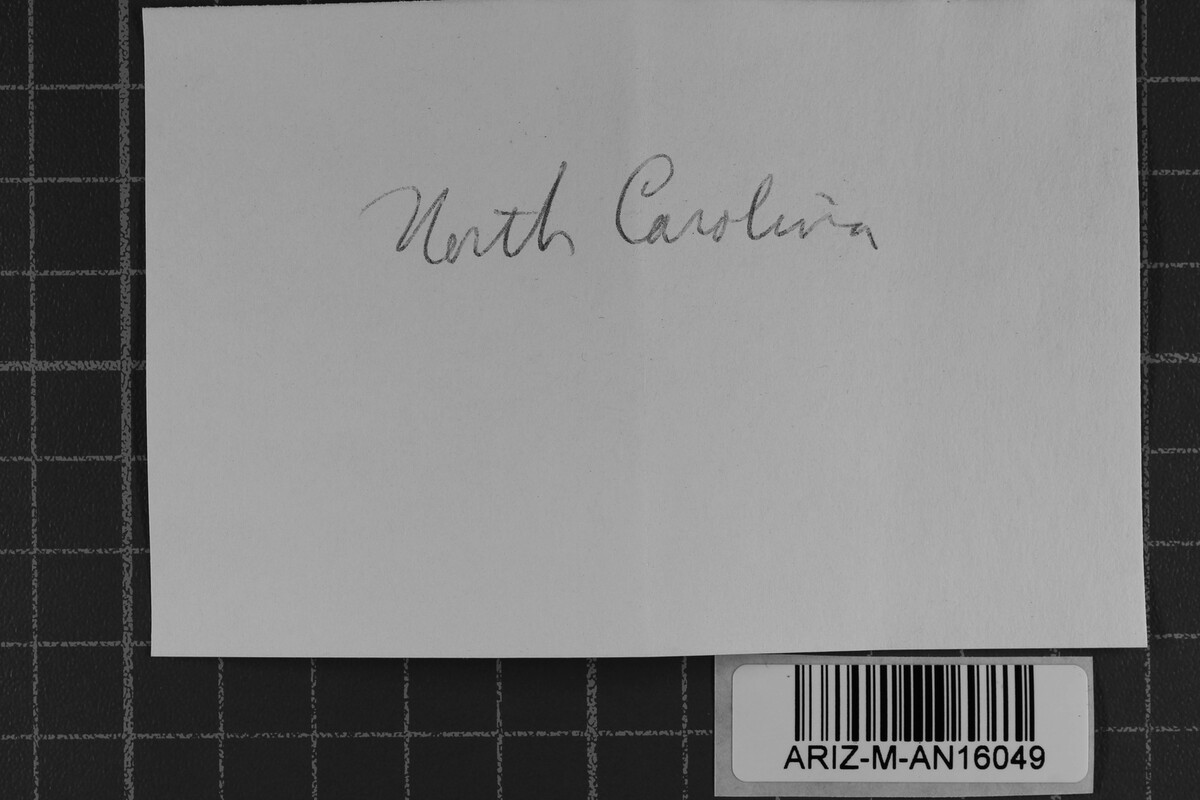 North Carolina
ARIZ-M-AN16049